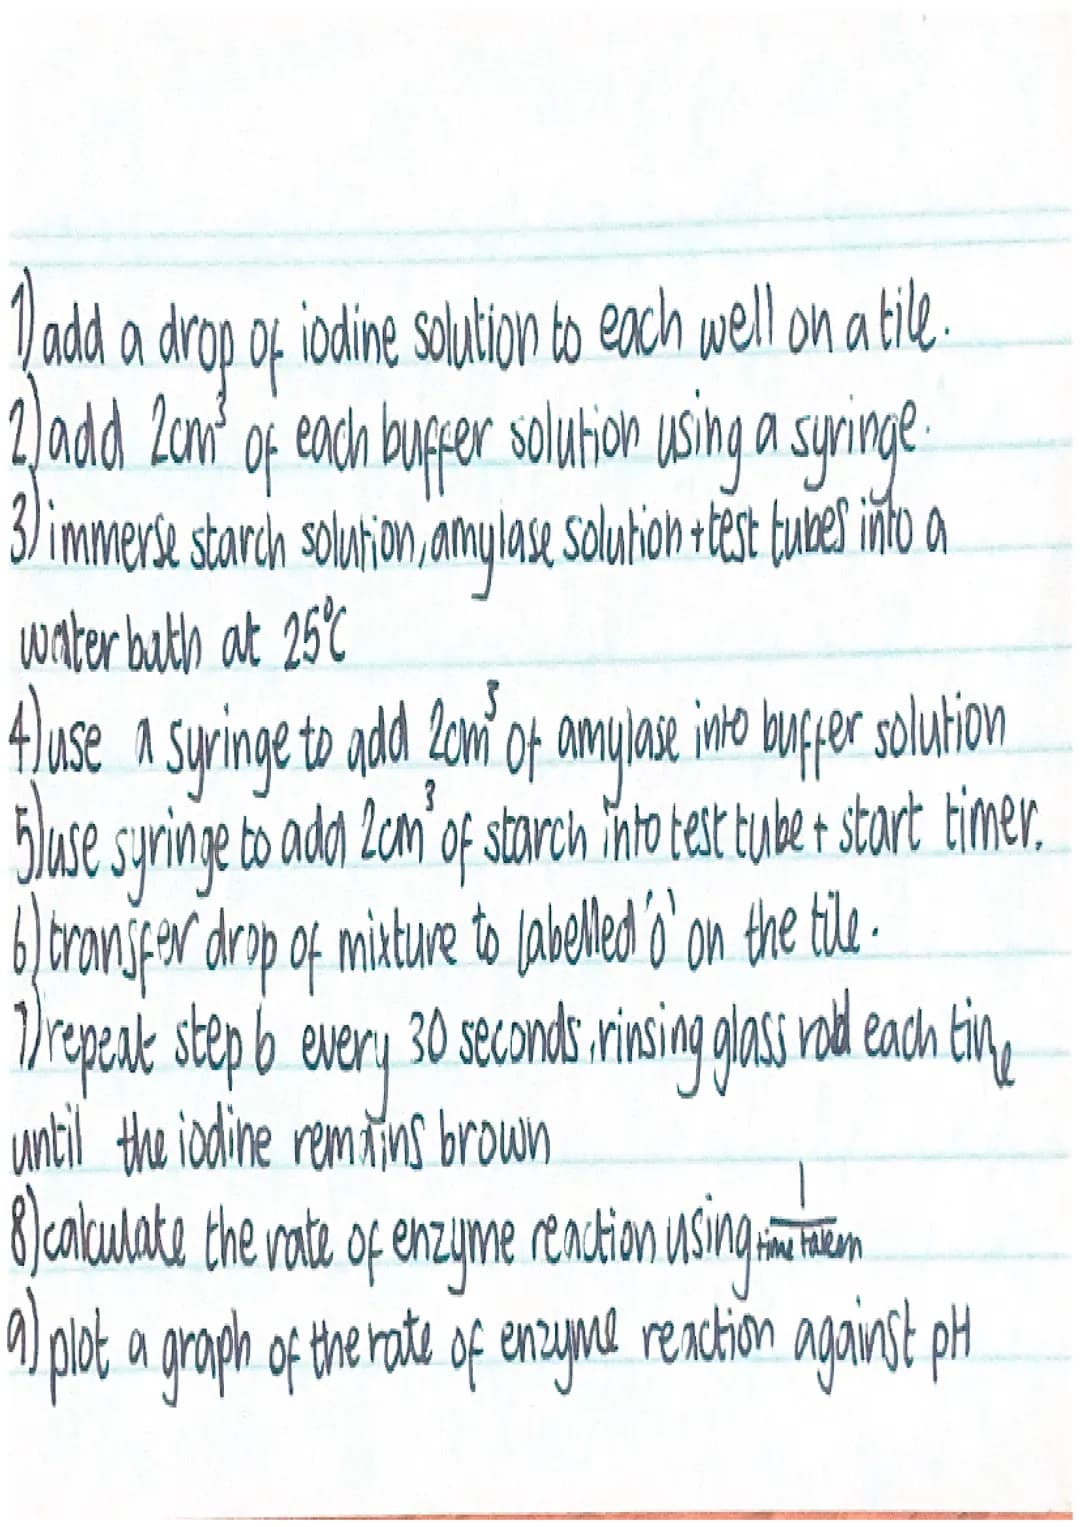 1) add a drop of iodine solution to each well on a tile.
2) add 2cm³ of each buffer solution using a syringe.
3) immerse starch solution, amylase solution + test tubes into a
water bath at 25°C
4) use a syringe to add 2cm³ of amylase into buffer solution
5) use syringe to add 2cm³ of starch into test tube + start timer.
6) transfer drop of mixture to labelled '0' on the tile.
7) repeat step 6 every 30 seconds, rinsing glass rod each time
until the iodine remains brown
8) calculate the rate of enzyme reaction using 1/time taken
9) plot a graph of the rate of enzyme reaction against pH